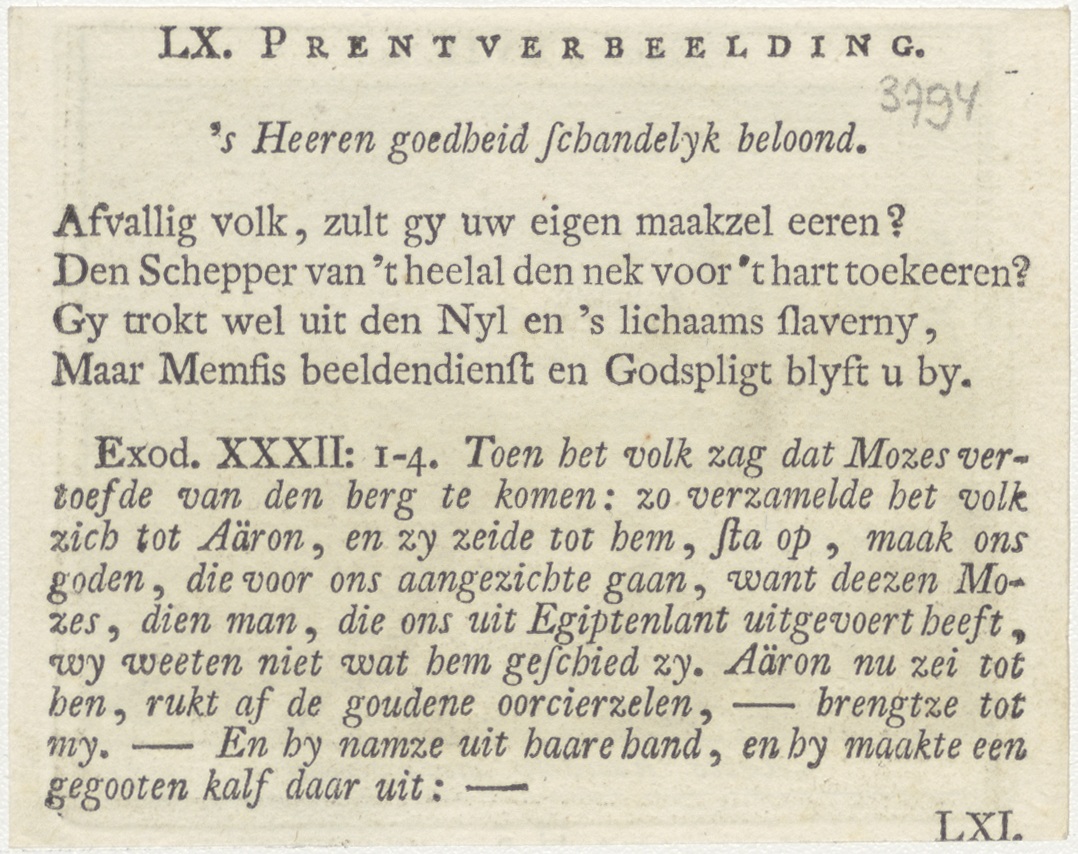 LX. PRENTVERBEELDING.
3794
's Heeren goedheid ſchandelyk beloond.
Afvallig volk, zult gy uw eigen maakzel eeren?
Den Schepper van 't heelal den nek voor 't hart toekeeren?
Gy trokt wel uit den Nyl en 's lichaams ſlaverny,
Maar Memfis beeldendienſt en Godspligt blyft u by.
Exod. XXXII: 1-4. Toen het volk zag dat Mozes ver-
toefde van den berg te komen: zo verzamelde het volk
zich tot Aäron, en zy zeide tot hem, ſta op, maak ons
goden, die voor ons aangezichte gaan, want deezen Mo-
zes, dien man, die ons uit Egiptenlant uitgevoert heeft,
wy weeten niet wat hem geſchied zy. Aäron nu zei tot
hen, rukt af de goudene oorcierzelen, — brengtze tot
my. — En hy namze uit haare hand, en hy maakte een
gegooten kalf daar uit: —
LXI.